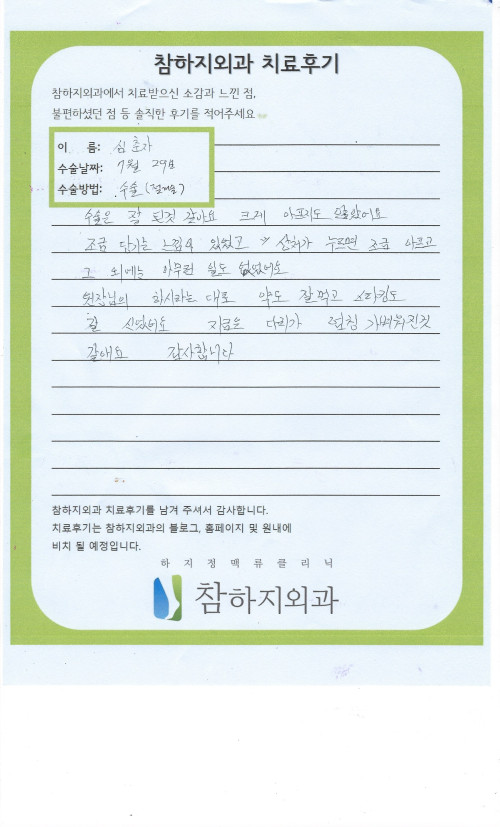 참하지외과 치료후기
참하지외과에서 치료받으신 소감과 느낀 점,
불편하셨던 점 등 솔직한 후기를 적어주세요
이 름: 심춘자
수술날짜: 7월 29일
수술방법: 수술 (절제술)
수술은 잘 된것 같아요 크게 아프지도 않았어요
조금 당기는 느낌이 있었고 누르면 조금 아프고
그 외에는 아무런 일도 없었어요
원장님의 하시라는 대로 약도 잘먹고 스타킹도
잘 신었어요 지금은 다리가 엄청 가벼워진것
같애요 감사합니다
참하지외과 치료후기를 남겨 주셔서 감사합니다.
치료후기는 참하지외과의 블로그, 홈페이지 및 원내에
비치 될 예정입니다.
하지정맥류클리닉
참하지외과